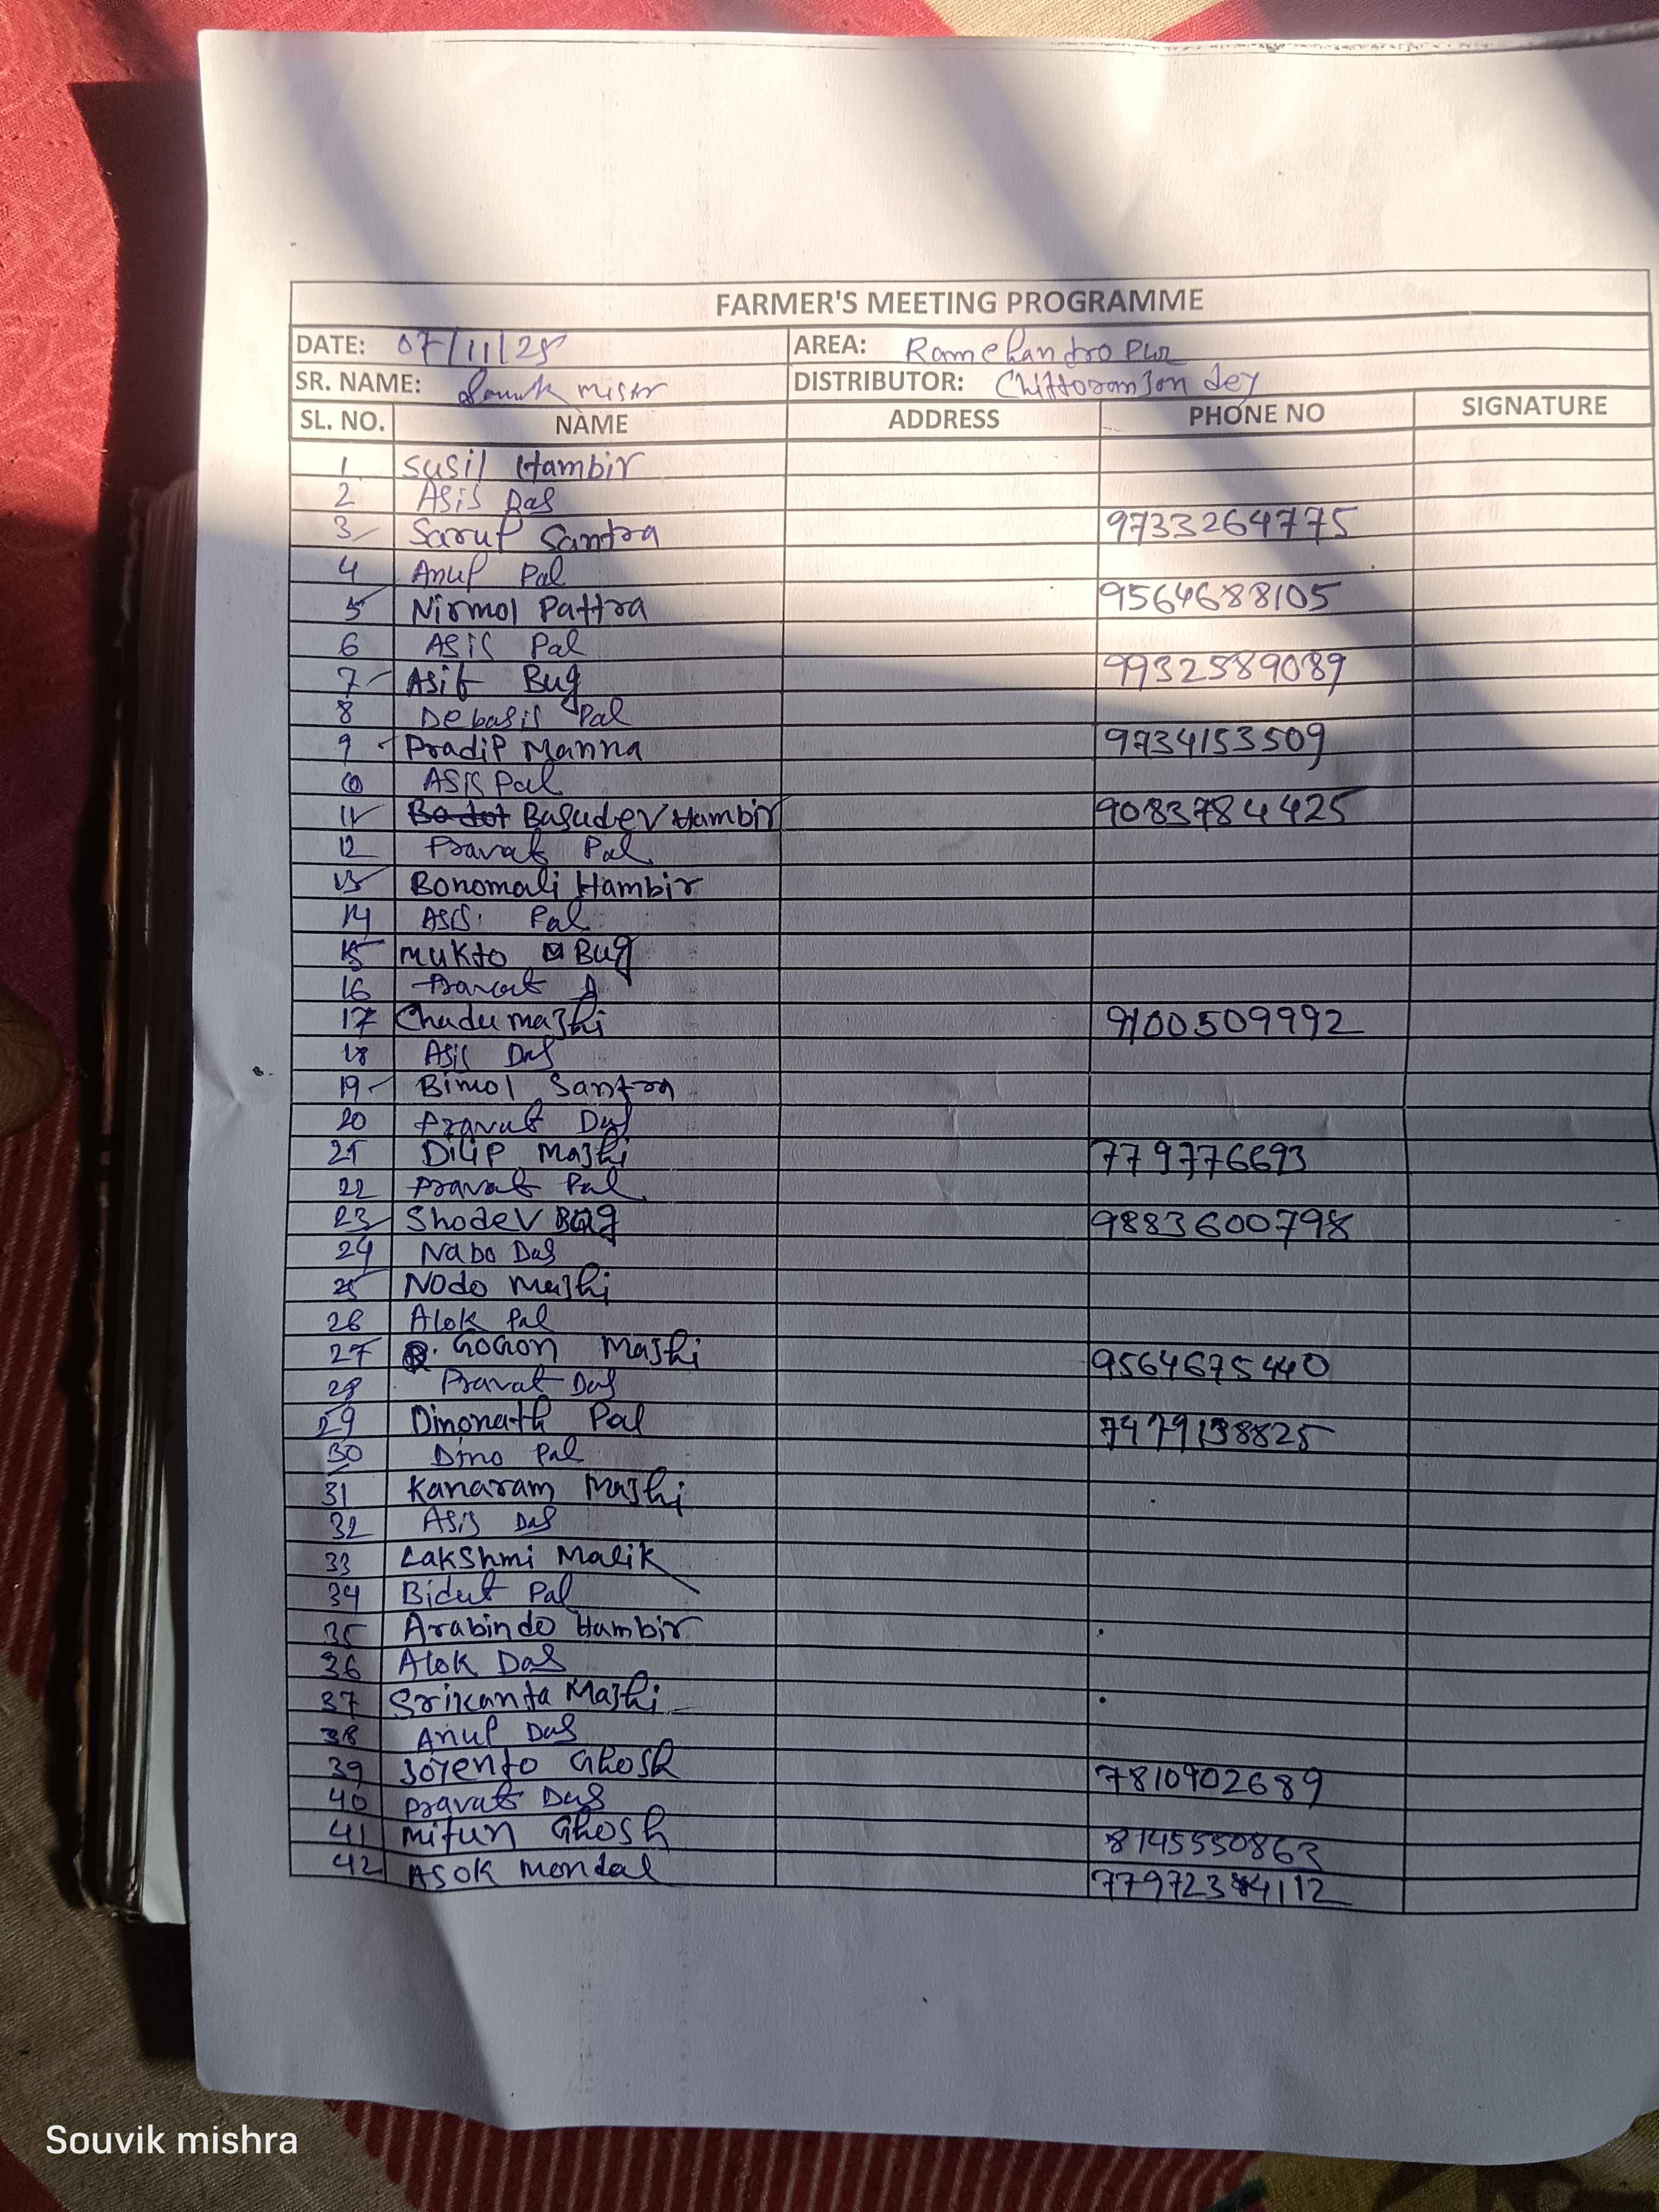 FARMER'S MEETING PROGRAMME
DATE: 07/11/25 AREA: Ramchandropur
SR. NAME: DISTRIBUTOR: Chittoranjon dey
SL. NO. NAME ADDRESS PHONE NO SIGNATURE
1 Susil Hambir
2 Asis Das
3 Sarup Santra 9733264775
4 Anup Pal
5 Nirmol Pattra 9564688105
6 Asis Pal
7 Asit Bug 9932589089
8 Debasis Pal
9 Pradip Manna 9734153509
10 Asis Pal
11 Basudev Hambir 9083784425
12 Pravat Pal
13 Bonomali Hambir
14 Asis Pal
15 Mukto Bug
16 Pravat
17 Chadu Majhi 9100509992
18 Asis Das
19 Bimol Santra
20 Pravat Das
21 Dilip Majhi 779776693
22 Pravat Pal
23 Shodev Bag 9883600798
24 Nabo Das
25 Nodo Majhi
26 Alok Pal
27 Gogon Majhi 9564675440
28 Pravat Das
29 Dinonath Pal 7479138825
30 Dino Pal
31 Kanaram Majhi
32 Asis Das
33 Lakshmi Malik
34 Bidut Pal
35 Arabindo Hambir
36 Alok Das
37 Srikanta Majhi
38 Anup Das
39 Joyento Ghosh 7810902689
40 Pravat Das
41 Mitun Ghosh 8145550863
42 Asok Mondal
Souvik mishra